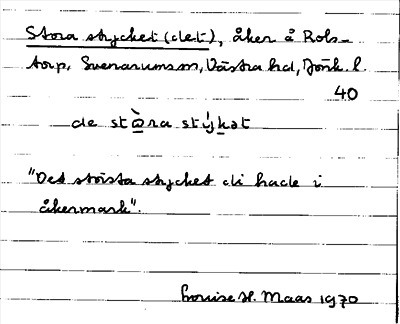 Stora stycket (det), åker å Rols-
torp, Svenarums sn, Västra hd, Jönk. l.
40
de stò̱ra stýḵət
"Det största stycket di hade i
åkermark".
Louise H. Maas 1970